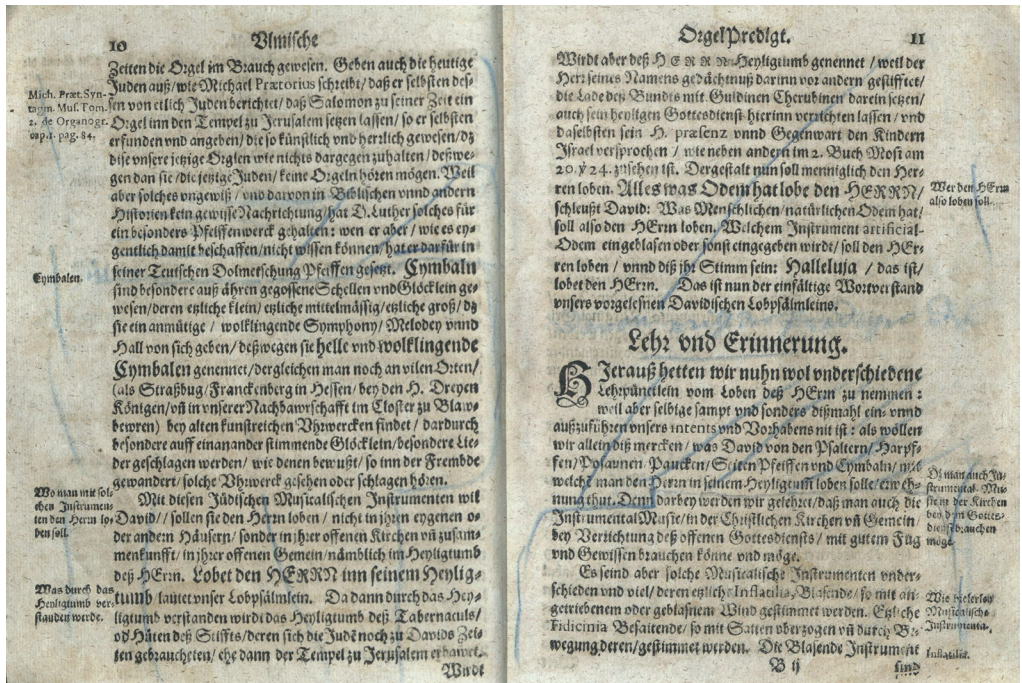 10 Vlmische
Zeiten die Orgel im Brauch gewesen. Geben auch die heutige
Juden auß/ wie Michael Prætorius schreibt/ daß er selbsten des-
sen von etlich Juden berichtet/ daß Salomon zu seiner Zeit ein
Orgel inn den Tempel zu Jerusalem setzen lassen/ so er selbsten
erfunden vnd angeben/ die so künstlich vnd herrlich gewesen/ dz
dise vnsere jetzige Orglen wie nichts dargegen zuhalten/ deßwe-
gen dan sie/ die jetzige Juden/ keine Orgeln hören mögen. Weil
aber solches vngewiß/ vnd darvon in Biblischen vnnd andern
Historien kein gewisse Nachrichtung/ hat D. Luther solches für
ein besonders Pfeiffenwerck gehalten: wen er aber/ wie es ey-
gentlich damit beschaffen/ nicht wissen können/ hat er darfür in
seiner Teutschen Dolmetschung Pfeiffen gesetzt. Cymbaln
sind besondere auß ähren gegossene Schellen vnd Glöcklein ge-
wesen/ deren etzliche klein/ etzliche mittelmässig/ etzliche groß/ dz
sie ein anmütige/ wolklingende Symphony/ Melodey vnnd
Hall von sich geben/ deßwegen sie helle vnd wolklingende
Cymbalen genennet/ dergleichen man noch an vilen Orten/
(als Straßbug/ Franckenberg in Hessen/ bey den H. Dreyen
Königen/ vn̄ in vnserer Nachbawrschafft im Closter zu Blaw-
bewren) bey alten kunstreichen Vhrwercken findet/ dardurch
besondere auff einander stimmende Glöcklein/ besondere Lie-
der geschlagen werden/ wie denen bewußt/ so inn der Frembde
gewandert/ solche Vhrwerck gesehen oder schlagen hören.
Mit diesen Jüdischen Musicalischen Instrumenten wil
David// sollen sie den Herrn loben/ nicht in jhren eygenen o-
der andern Häusern/ sonder in jhrer offenen Kirchen vn̄ zusam-
menkunfft/ in jhrer offenen Gemein/ nämblich im Heyligtumb
deß HErrn. Lobet den HERRN inn seinem Heylig-
tumb lautet vnser Lobpsälmlein. Da dann durch das Hey-
ligtumb verstanden wirdt das Heyligtumb deß Tabernaculs/
od Hüten deß Stiffts/ deren sich die Judē noch zu Davids Zei-
ten gebraucheten/ ehe dann der Tempel zu Jerusalem erbawet.
Wirdt
Mich. Præt. Syn-
tagm. Mus. Tom.
2. de Organogr.
cap. 1. pag. 84.
Cymbalen.
Wo man mit sol-
chen Instrumen-
ten den Herrn lo-
ben soll.
Was durch das
Heyligtumb ver-
standen werde.
OrgelPredigt. 11
Wirdt aber deß HERRN Heyligtumb genennet/ weil der
Herr seines Namens gedächtnuß darinn vor andern gestifftet/
die Lade deß Bundts mit Guldinen Cherubinen darein setzen/
auch sein heyligen Gottesdienst hierinn verrichten lassen/ vnd
daselbsten sein H. præsenz vnnd Gegenwart den Kindern
Israel versprochen/ wie neben andern im 2. Buch Mosi am
20. ꝟ 24. zusehen ist. Dergestalt nun soll menniglich den Her-
ren loben. Alles was Odem hat lobe den HERRN/
schleußt David: Was Menschlichen/ natürlichen Odem hat/
soll also den HErrn loben. Welchem Instrument artificial-
Odem eingeblasen oder sonst eingegeben wirdt/ soll den HEr-
ren loben/ vnnd diß jhr Stimm sein: Halleluja/ das ist/
lobet den HErrn. Das ist nun der einfältige Wortverstand
vnsers vorgelesnen Davidischen Lobpsälmleins.
Lehr vnd Erinnerung.
HJerauß hetten wir nuhn wol vnderschiedene
Lehrpünctlein vom Loben deß HErrn zu nemmen:
weil aber selbige sampt vnd sonders dißmahl ein- vnnd
außzuführen vnsers intents vnd Vorhabens nit ist: als wollen
wir allein diß mercken/ was David von den Psaltern/ Harpf-
fen/ Posaunen/ Paucken/ Seiten Pfeiffen vnd Cymbaln/ mit
welchē man den Herrn in seinem Heyligtumb loben solle/ erweh-
nung thut. Denn darbey werden wir gelehret/ daß man auch die
Instrumental Music/ in der Christlichen Kirchen vn̄ Gemein/
bey Verrichtung deß offenen Gottesdiensts/ mit gutem Fug
vnd Gewissen brauchen könne vnd möge.
Es seind aber solche Musicalische Instrumenten vnder-
schieden vnd viel/ deren etzliche Inflatilia, Blasende/ so mit an-
getriebenem oder geblasnem Wind gestimmet werden. Etzliche
Fidicinia Besaitende/ so mit Saiten vberzogen vn̄ durch Be-
wegung deren/ gestimmet werden. Die Blasende Instrument
B ij sind
Wer den HErrn
also loben soll.
Ob man auch In-
strumental-Mu-
sic in der Kirchen
bey dem Gottes-
dienst brauchen
möge.
Wie vielerley
Musicalische
Instrumenta.
Inflatilia.